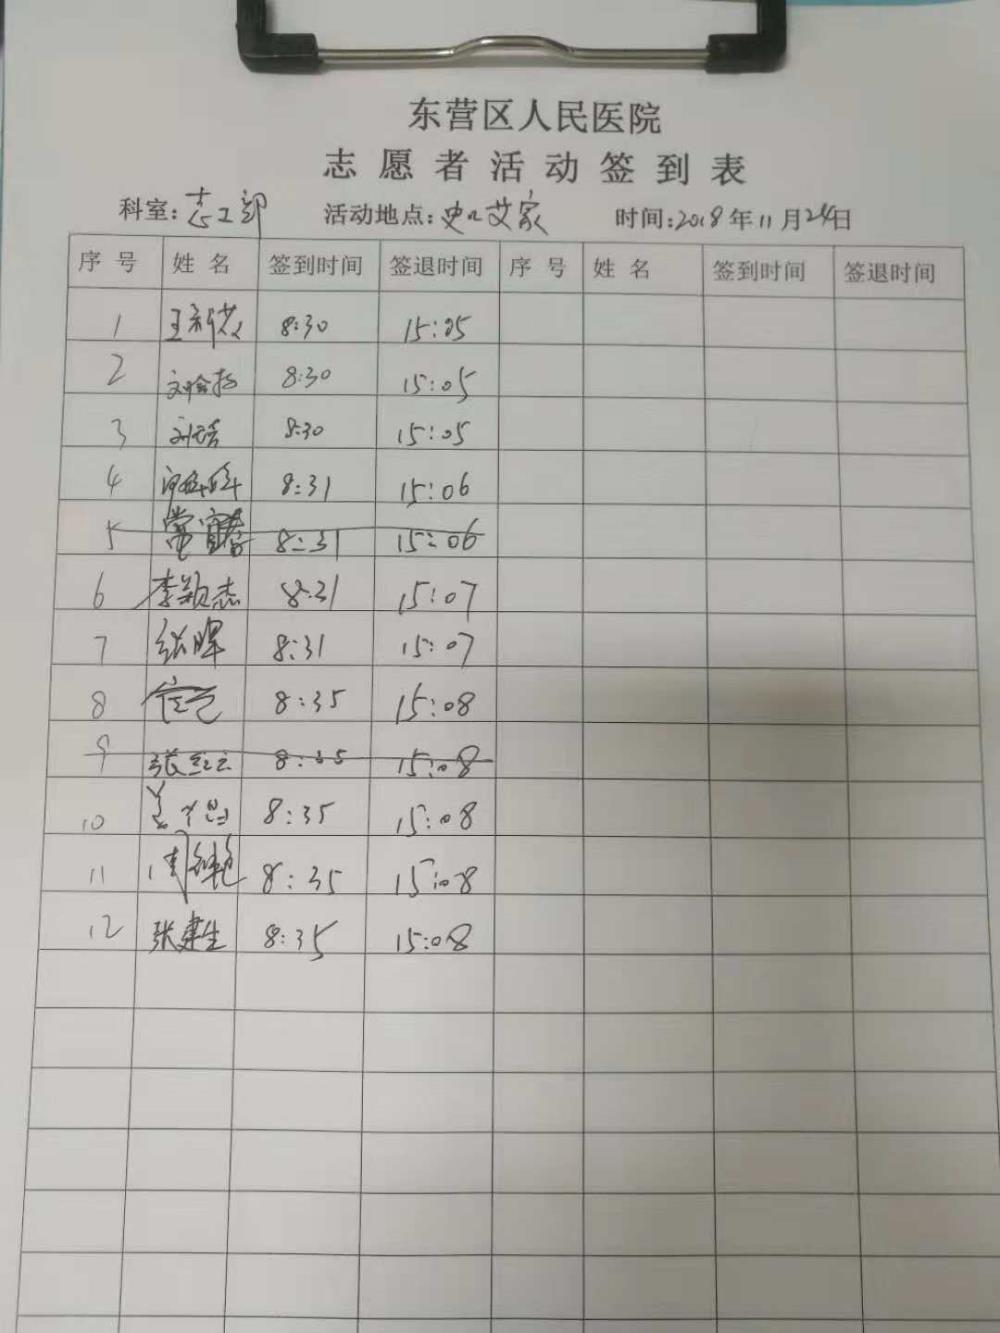 东营区人民医院
志愿者活动签到表
科室:志工部 活动地点: 时间:2018年11月24日
序号 姓名 签到时间 签退时间 序号 姓名 签到时间 签退时间
1 8:30 15:05
2 8:30 15:05
3 8:30 15:05
4 8:31 15:06
5 8:31 15:06
6 李颖杰 8:31 15:07
7 张晖 8:31 15:07
8 8:35 15:08
9 张红云 8:35 15:08
10 8:35 15:08
11 8:35 15:08
12 张建生 8:35 15:08